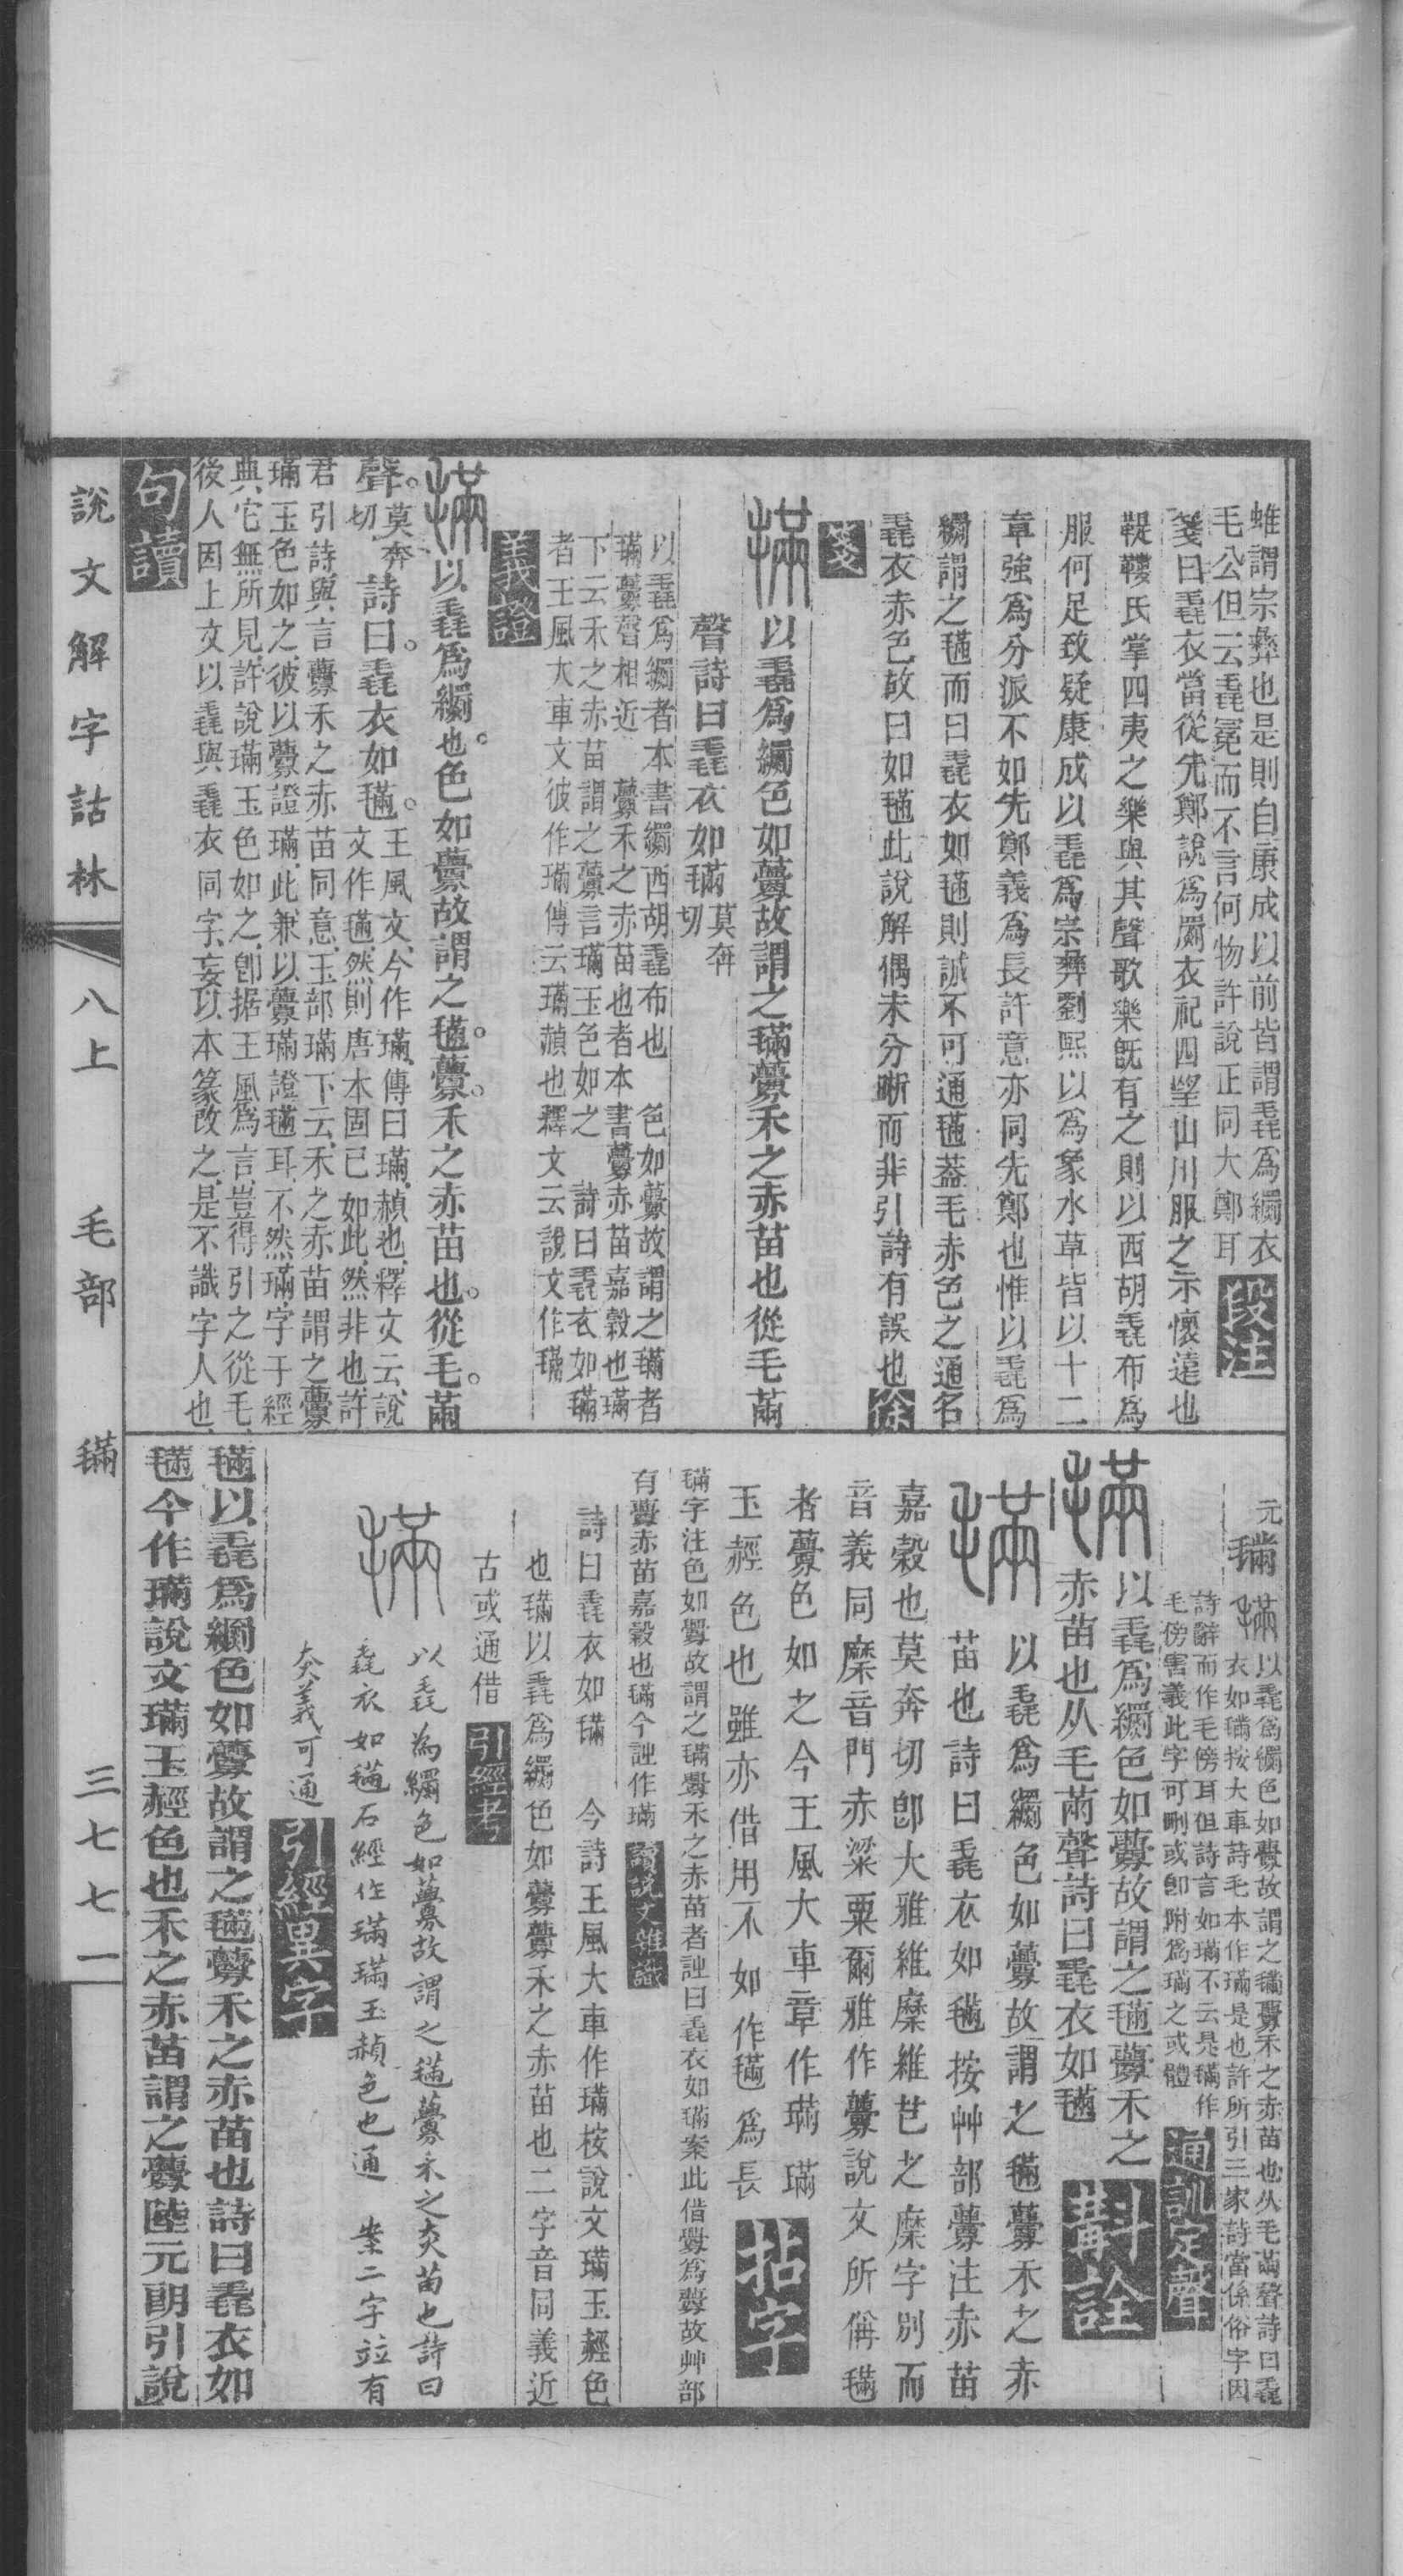 蜼謂宗彝也是則自康成以前皆謂毳爲繝衣
毛公但云毳冕而不言何物許說正同大鄭耳
段注
箋曰毳衣當從先鄭說爲罽衣祀四望山川服之示懷遠也
鞮鞻氏掌四夷之樂與其聲歌樂既有之則以西胡毳布爲
服何足致疑康成以毳爲宗彝劉熙以為象水草皆以十二
章強爲分派不如先鄭義爲長許意亦同先鄭也惟以毳爲
繝謂之𣯩而曰毳衣如𣯩則誠不可通𣯩葢毛赤色之通名
毳衣赤色故曰如𣯩此說解偶未分晰而非引詩有誤也
徐
箋
以毳爲繝色如虋故謂之璊虋禾之赤苗也從毛㒼
聲詩曰毳衣如璊
莫奔
切
以毳爲繝者本書繝西胡毳布也　色如虋故謂之璊者
璊虋聲相近　虋禾之赤苗也者本書虋赤苗嘉穀也璊
下云禾之赤苗謂之虋言璊玉色如之　詩曰毳衣如璊
者王風大車文彼作璊傳云璊赬也釋文云說文作璊
義證
以毳爲繝也色如虋故謂之𣯩虋禾之赤苗也從毛㒼
聲
莫奔
切
詩曰毳衣如𣯩
王風文今作璊傳曰璊赬也釋文云說
文作𣯩然則唐本固已如此然非也許
君引詩與言虋禾之赤苗同意玉部璊下云禾之赤苗謂之虋
璊玉色如之彼以虋證璊此兼以虋璊證𣯩耳不然璊字于經
典它無所見許說璊玉色如之卽据王風爲言豈得引之從毛
後人因上文以毳與毳衣同字妄以本篆改之是不識字人也
句讀
元
𣯩
以毳爲繝色如虋故謂之𣯩虋禾之赤苗也从毛㒼聲詩曰毳
衣如璊按大車詩毛本作璊是也許所引三家詩當係俗字因
詩辭而作毛傍耳但詩言如璊不云是𣯩作
毛傍害義此字可刪或卽附爲璊之或體
通訓定聲
以毳爲繝色如虋故謂之𣯩虋禾之
赤苗也从毛㒼聲詩曰毳衣如𣯩
斠詮
以毳爲繝色如虋故謂之𣯩虋禾之赤
苗也詩曰毳衣如𣯩按艸部虋注赤苗
嘉穀也莫奔切卽大雅維穈維芑之穈字別而
音義同穈音門赤粱粟爾雅作虋說文所偁𣯩
者虋色如之今王風大車章作璊璊
玉經色也雖亦借用不如作𣯩爲長
拈字
璊字注色如釁故謂之璊釁禾之赤苗者詿曰毳衣如璊案此借釁爲虋故艸部
有虋赤苗嘉穀也璊今詿作璊
讀說文雜識
詩曰毳衣如𣯩　今詩王風大車作璊桉說文璊玉經色
也𣯩以毳爲繝色如虋虋禾之赤苗也二字音同義近
古或通借
引經考
以毳為繝色如虋故謂之𣯩虋禾之赤苗也詩曰
毳衣如𣯩石經作璊璊玉赬色也通　案二字竝有
赤義可通
引經異字
𣯩以毳爲繝色如虋故謂之𣯩虋禾之赤苗也詩曰毳衣如
𣯩今作璊說文璊玉經色也禾之赤苗謂之虋陸元朗引說
說文解字詁林
八上
毛部
𣯩
三七七一